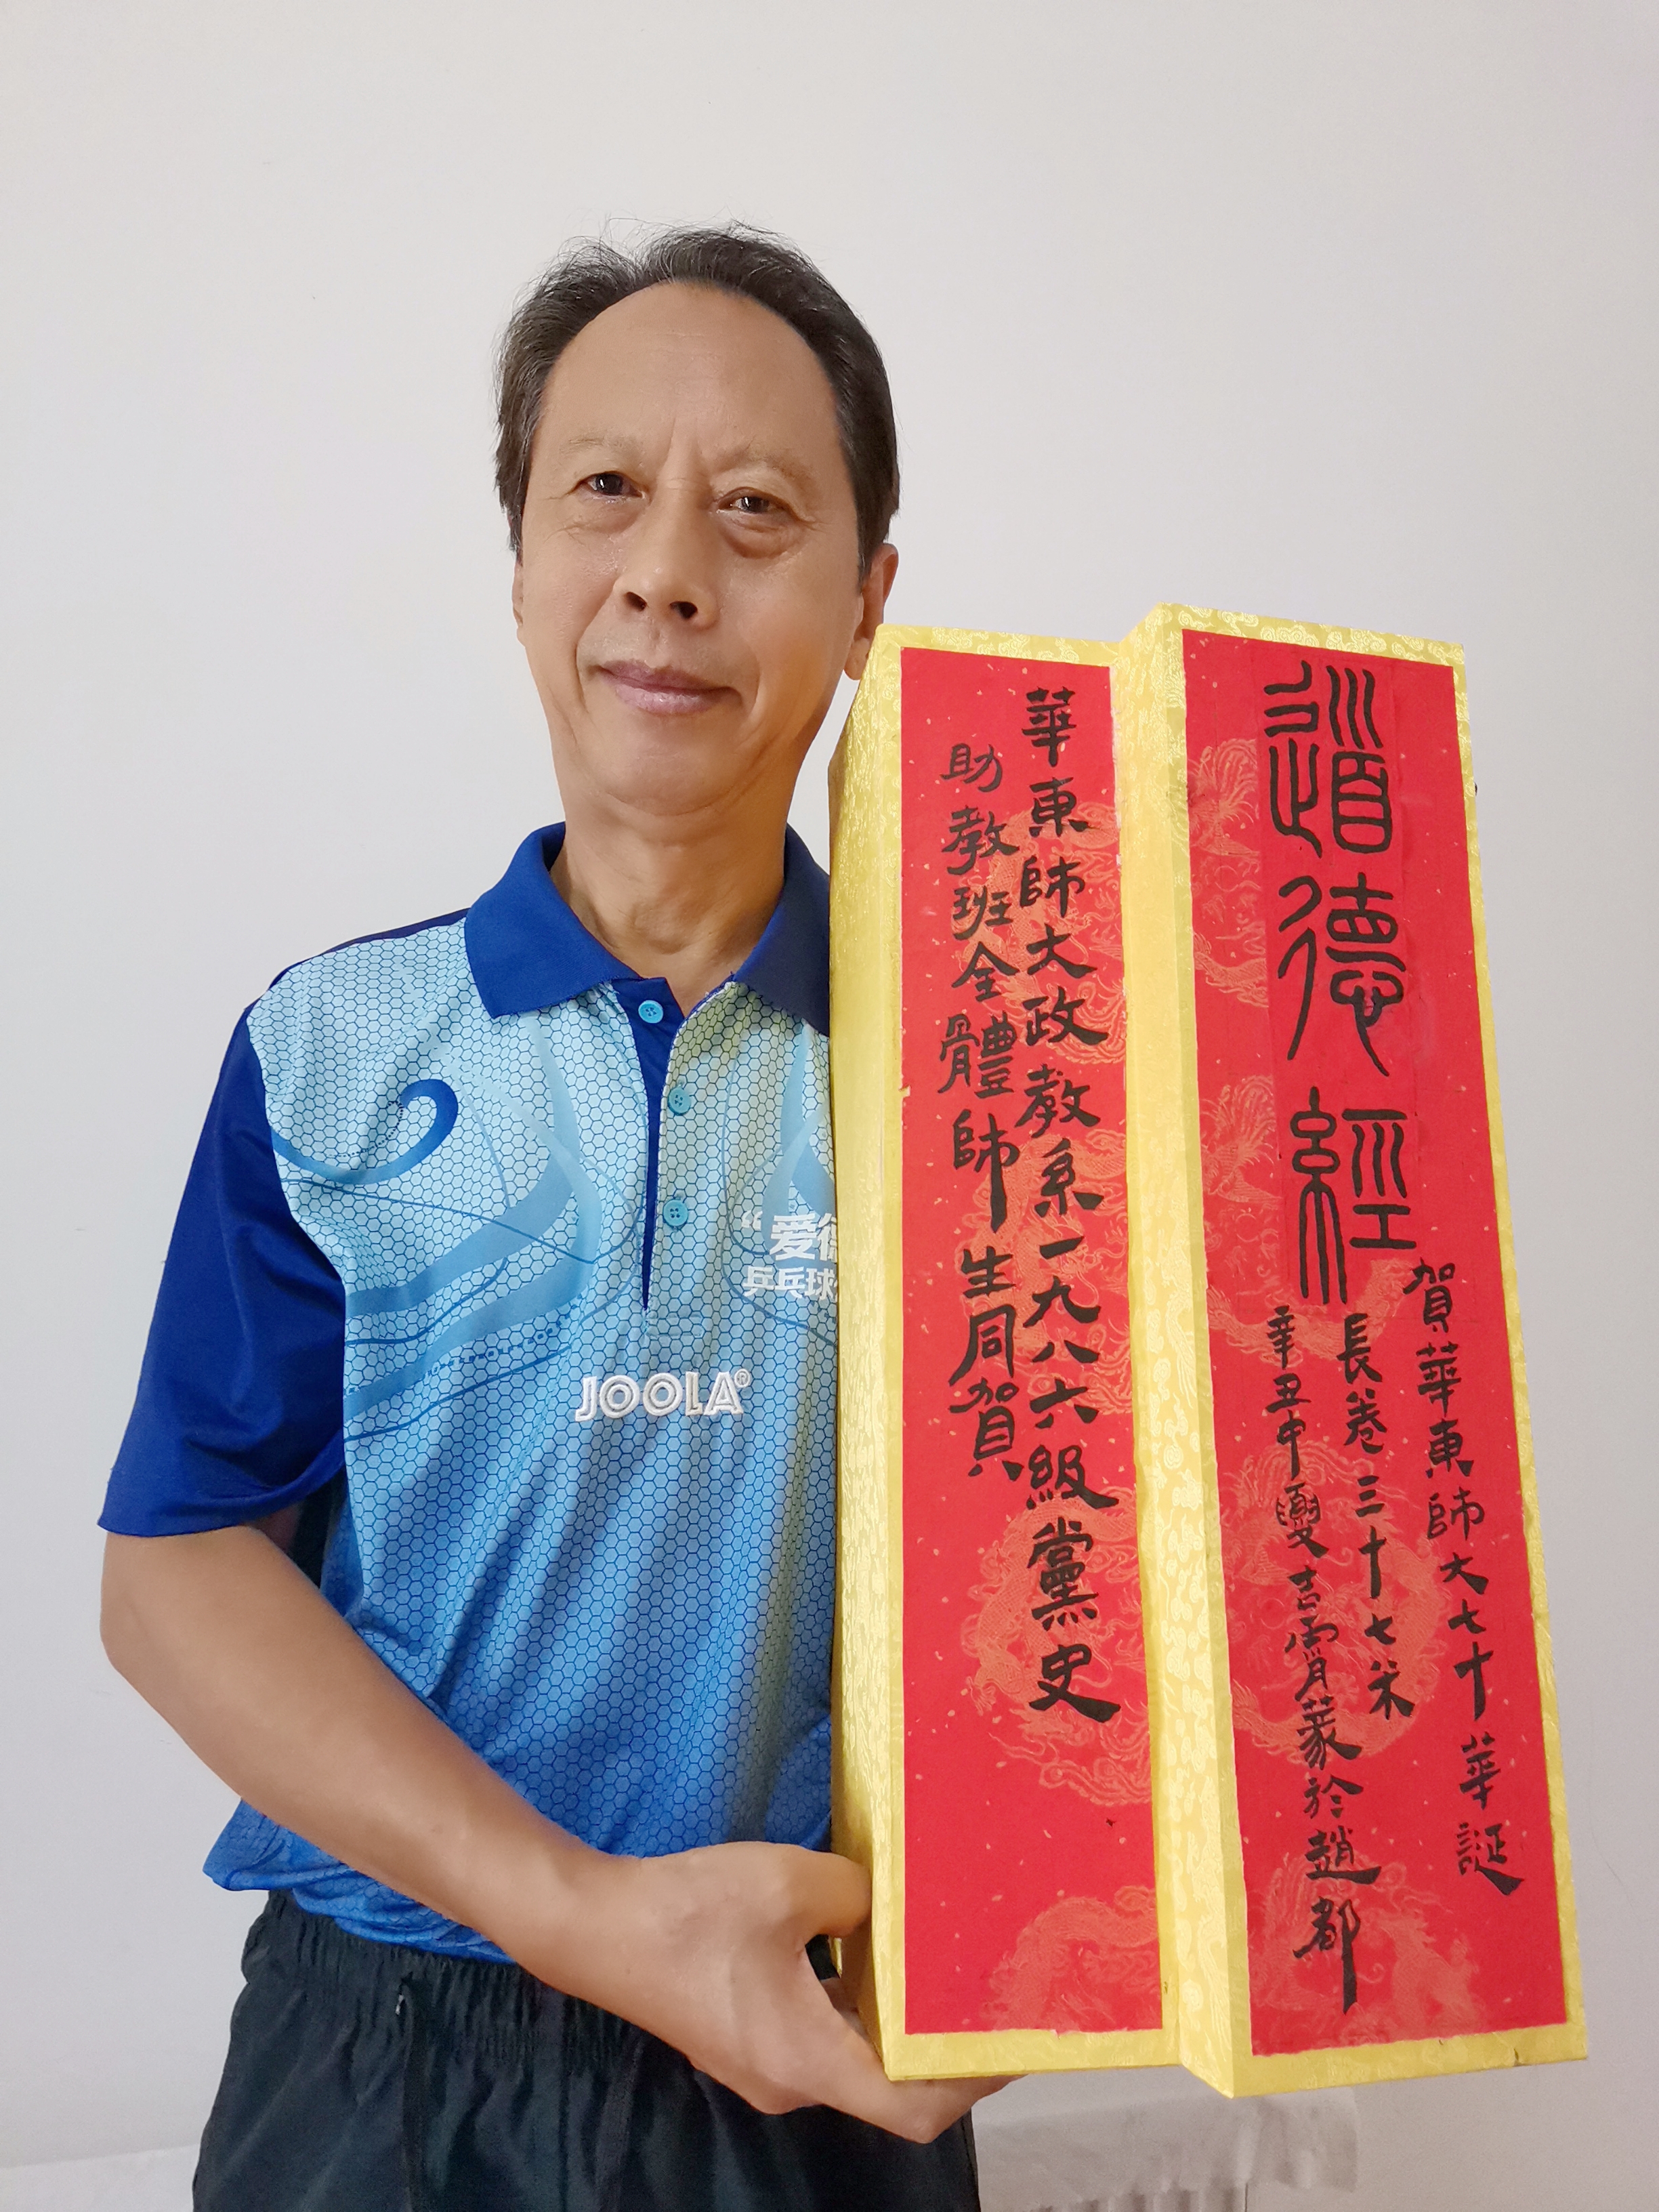 道德經
賀華東師大七十華誕
長卷三十七米
辛丑中夏吉霄月蒙於趙都
華東師大政教系一九八六級黨史
助教班全體師生同賀
"爱
乒乓球
JOOLA®